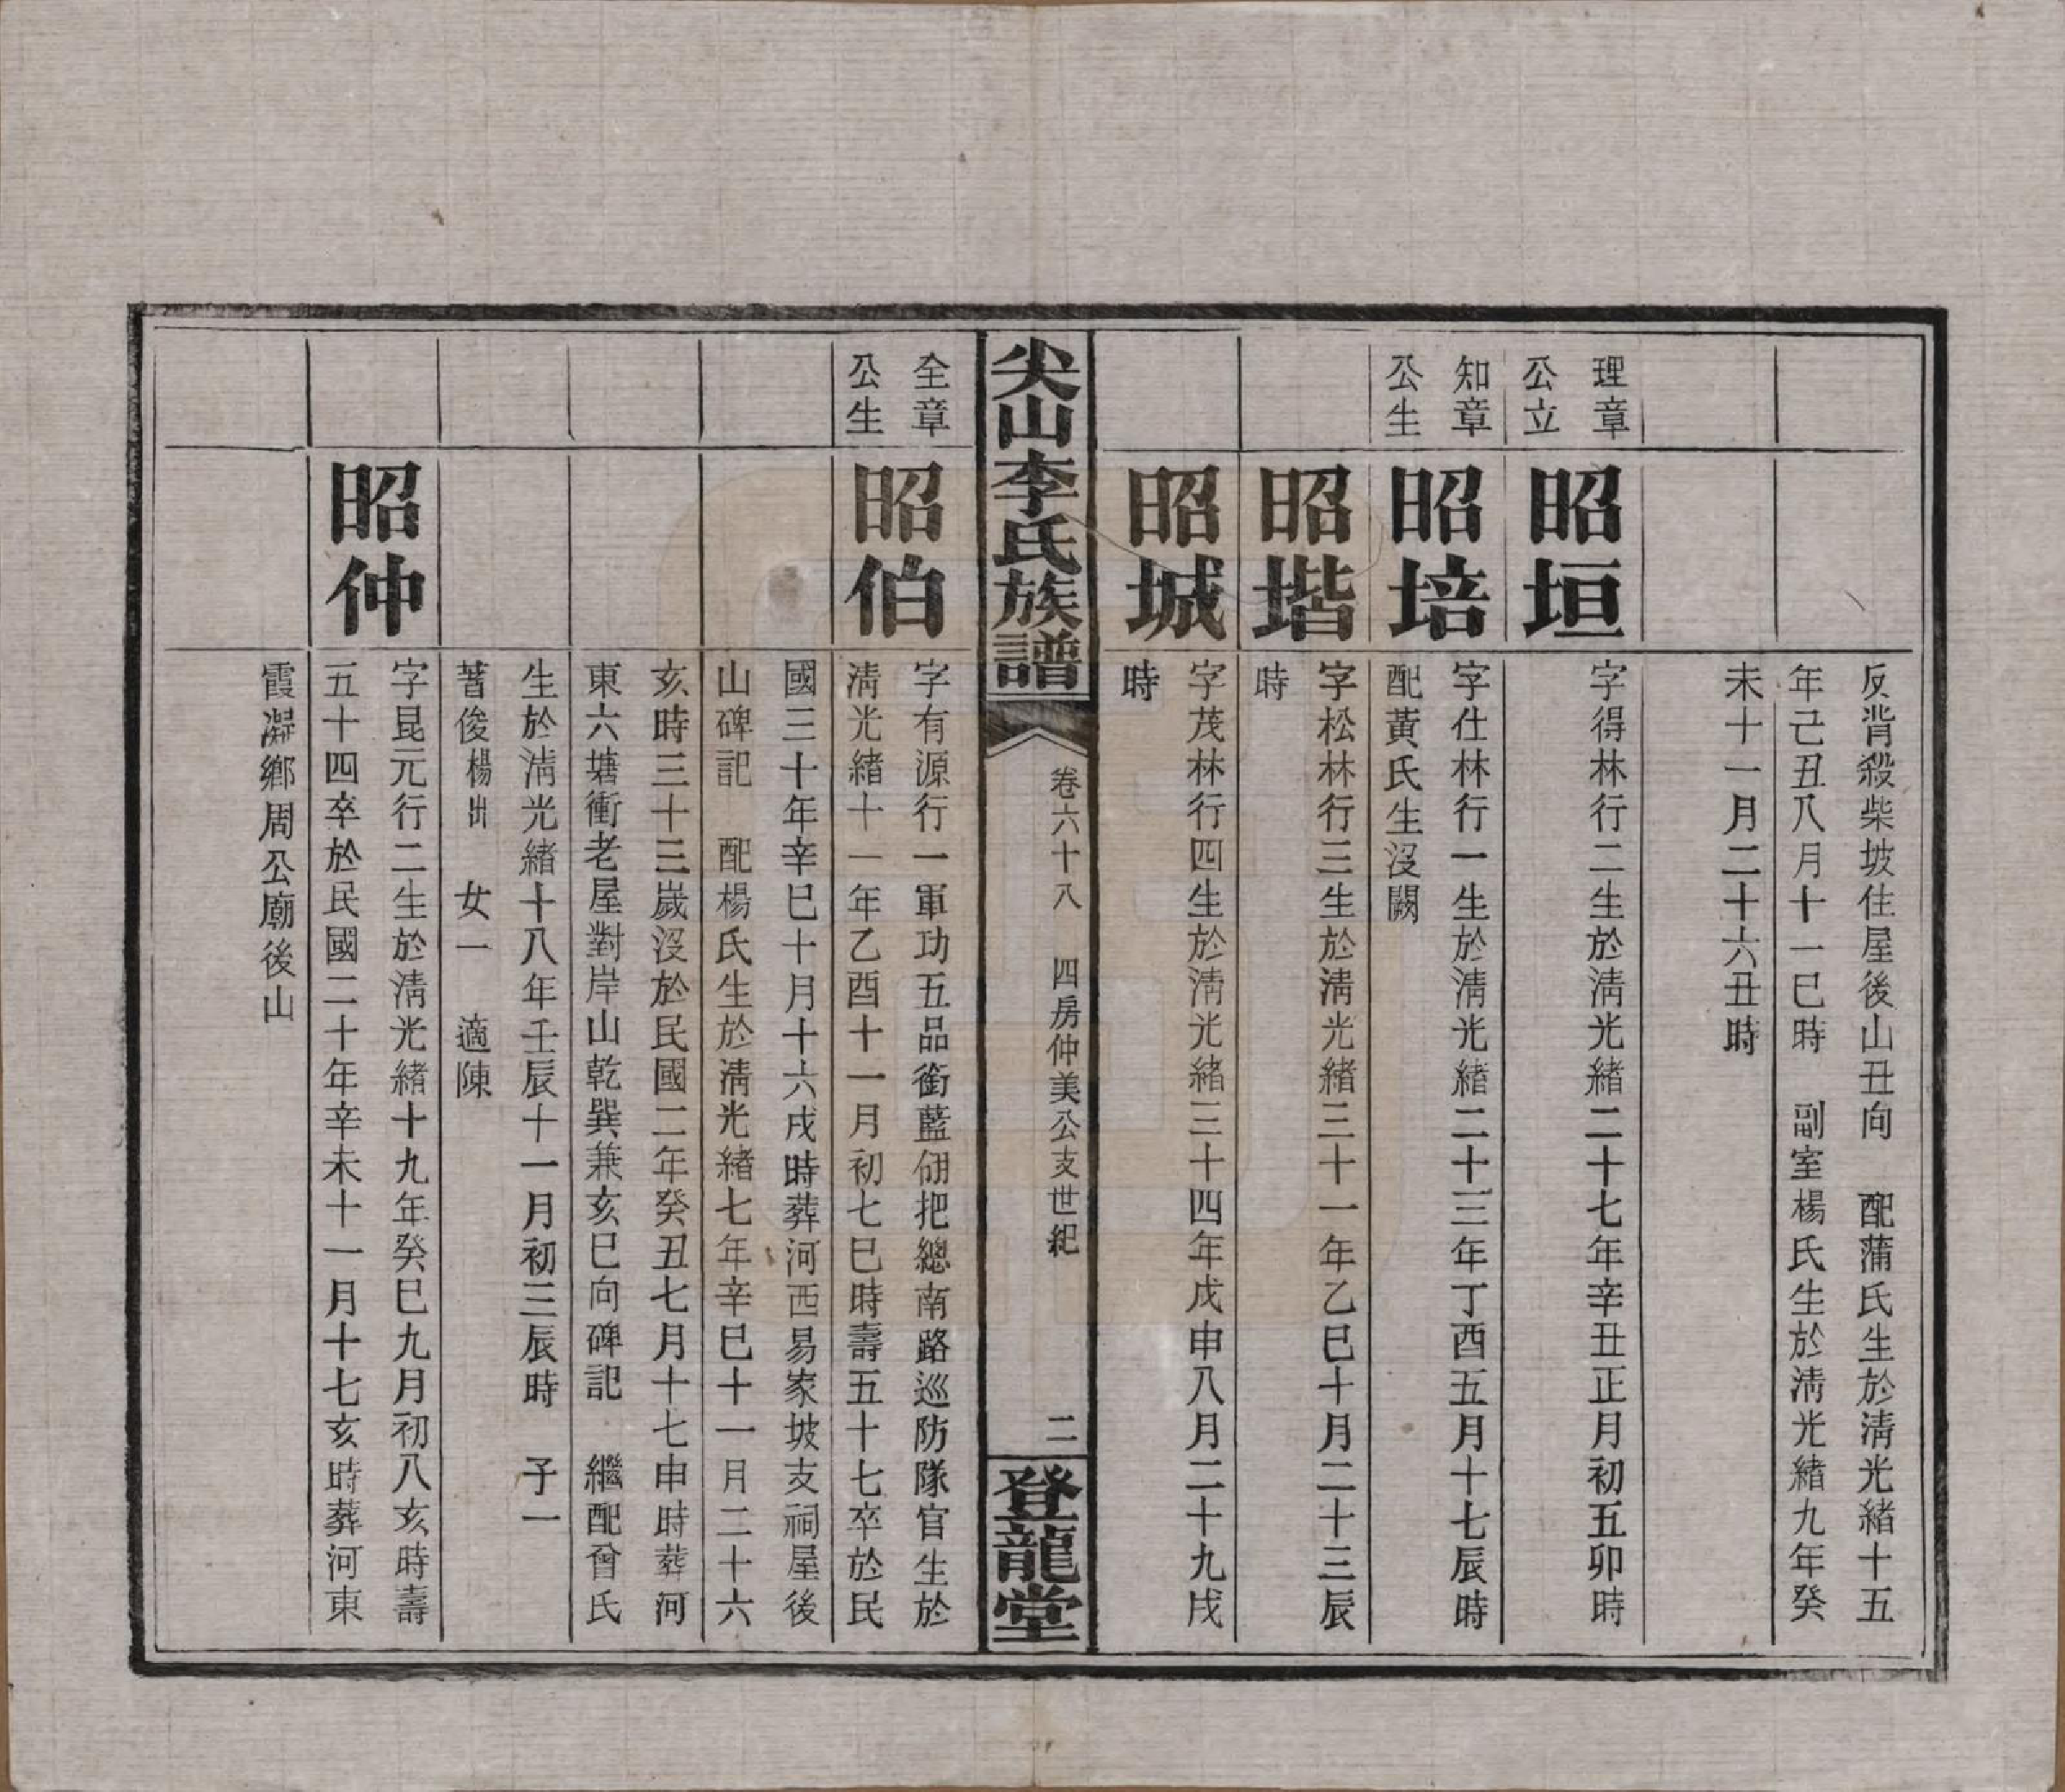 反背殺柴坡住屋後山丑向　配蒲氏生於淸光緒十五
年己丑八月十一巳時　副室楊氏生於淸光緒九年癸
未十一月二十六丑時
理章
公立
昭垣
字得林行二生於淸光緒二十七年辛丑正月初五卯時
知章
公生
昭培
字仕林行一生於淸光緒二十三年丁酉五月十七辰時
配黃氏生沒闕
昭堦
字松林行三生於淸光緒三十一年乙巳十月二十三辰
時
昭城
字茂林行四生於淸光緒三十四年戊申八月二十九戌
時
尖山李氏族譜
卷六十八　四房仲美公支世紀
二
登龍堂
全章
公生
昭伯
字有源行一軍功五品銜藍翎把總南路巡防隊官生於
淸光緒十一年乙酉十一月初七巳時壽五十七卒於民
國三十年辛巳十月十六戌時葬河西易家坡支祠屋後
山碑記　配楊氏生於淸光緒七年辛巳十一月二十六
亥時三十三歲沒於民國二年癸丑七月十七申時葬河
東六塘衝老屋對岸山乾巽兼亥巳向碑記　繼配曾氏
生於淸光緒十八年壬辰十一月初三辰時　子一
蓍俊楊出　女一　適陳
昭仲
字昆元行二生於淸光緒十九年癸巳九月初八亥時壽
五十四卒於民國二十年辛未十一月十七亥時葬河東
霞凝鄉周公廟後山